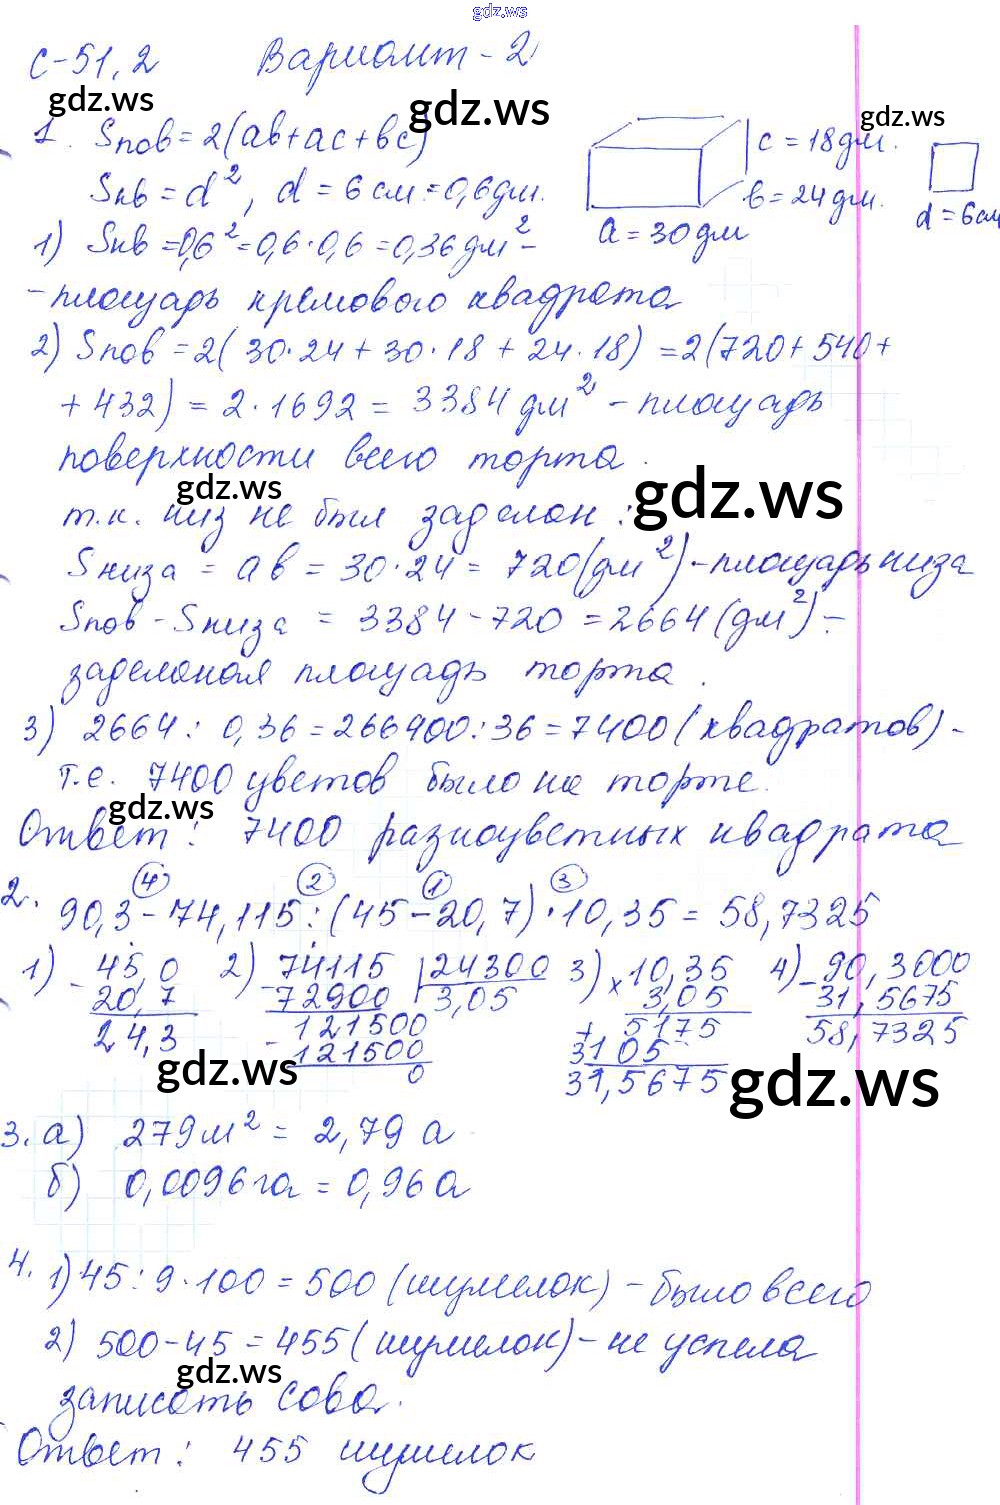 gdz.ws
С-51,2 Вариант-2
gdz.ws gdz.ws gdz.ws
1. Sпов=2(ab+ac+bc)
c=18дм.
Sкв=d², d=6см=0,6дм.
b=24дм.
d=6см
a=30дм
1) Sкв=0,6²=0,6·0,6=0,36дм²-
-площадь кремового квадрата
2) Sпов=2(30·24+30·18+24·18)=2(720+540+
+432)=2·1692=3384дм²-площадь
поверхности всего торта.
gdz.ws gdz.ws
т.к. низ не был заделан:
Sниза=ab=30·24=720(дм²)-площадь низа
Sпов-Sниза=3384-720=2664(дм²)-
заделаная площадь торта.
3) 2664:0,36=266400:36=7400(квадратов)-
т.е. 7400 цветов было на торте.
gdz.ws
Ответ: 7400 разноцветных квадрата
④ ② ① ③
2. 90,3-74,115:(45-20,7)·10,35=58,7325
1) -45,0 2) -74115 24300 3) ×10,35 4) -90,3000
20,7 72900 3,05 3,05 31,5675
24,3 -121500 + 5175 58,7325
121500 3105
0 31,5675
gdz.ws gdz.ws
3. а) 279м²=2,79а
б) 0,0096га=0,96а
4. 1) 45:9·100=500(шумелок)-было всего
2) 500-45=455(шумелок)-не успела
gdz.ws
записать сова.
Ответ: 455 шумелок